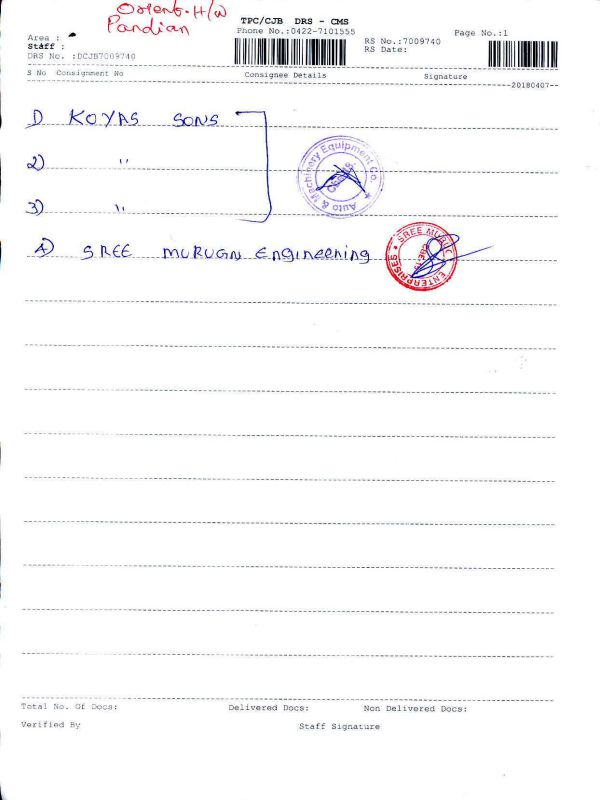 Orient. H/W
Pandian
TPC/CJB DRS - CMS
Phone No.:0422-7101555
Page No.:1
Area :
RS No.:7009740
Staff :
RS Date:
DRS No. :DCJB7009740
S No Consignment No Consignee Details Signature
--20180407--
1) KOYAS SONS
2) "
3) "
Auto & Machinery Equipment Co. ★
4) SREE MURUGN Engineering
SREE MURUG
ENTERPRISES
Total No. Of Docs: Delivered Docs: Non Delivered Docs:
Verified By Staff Signature